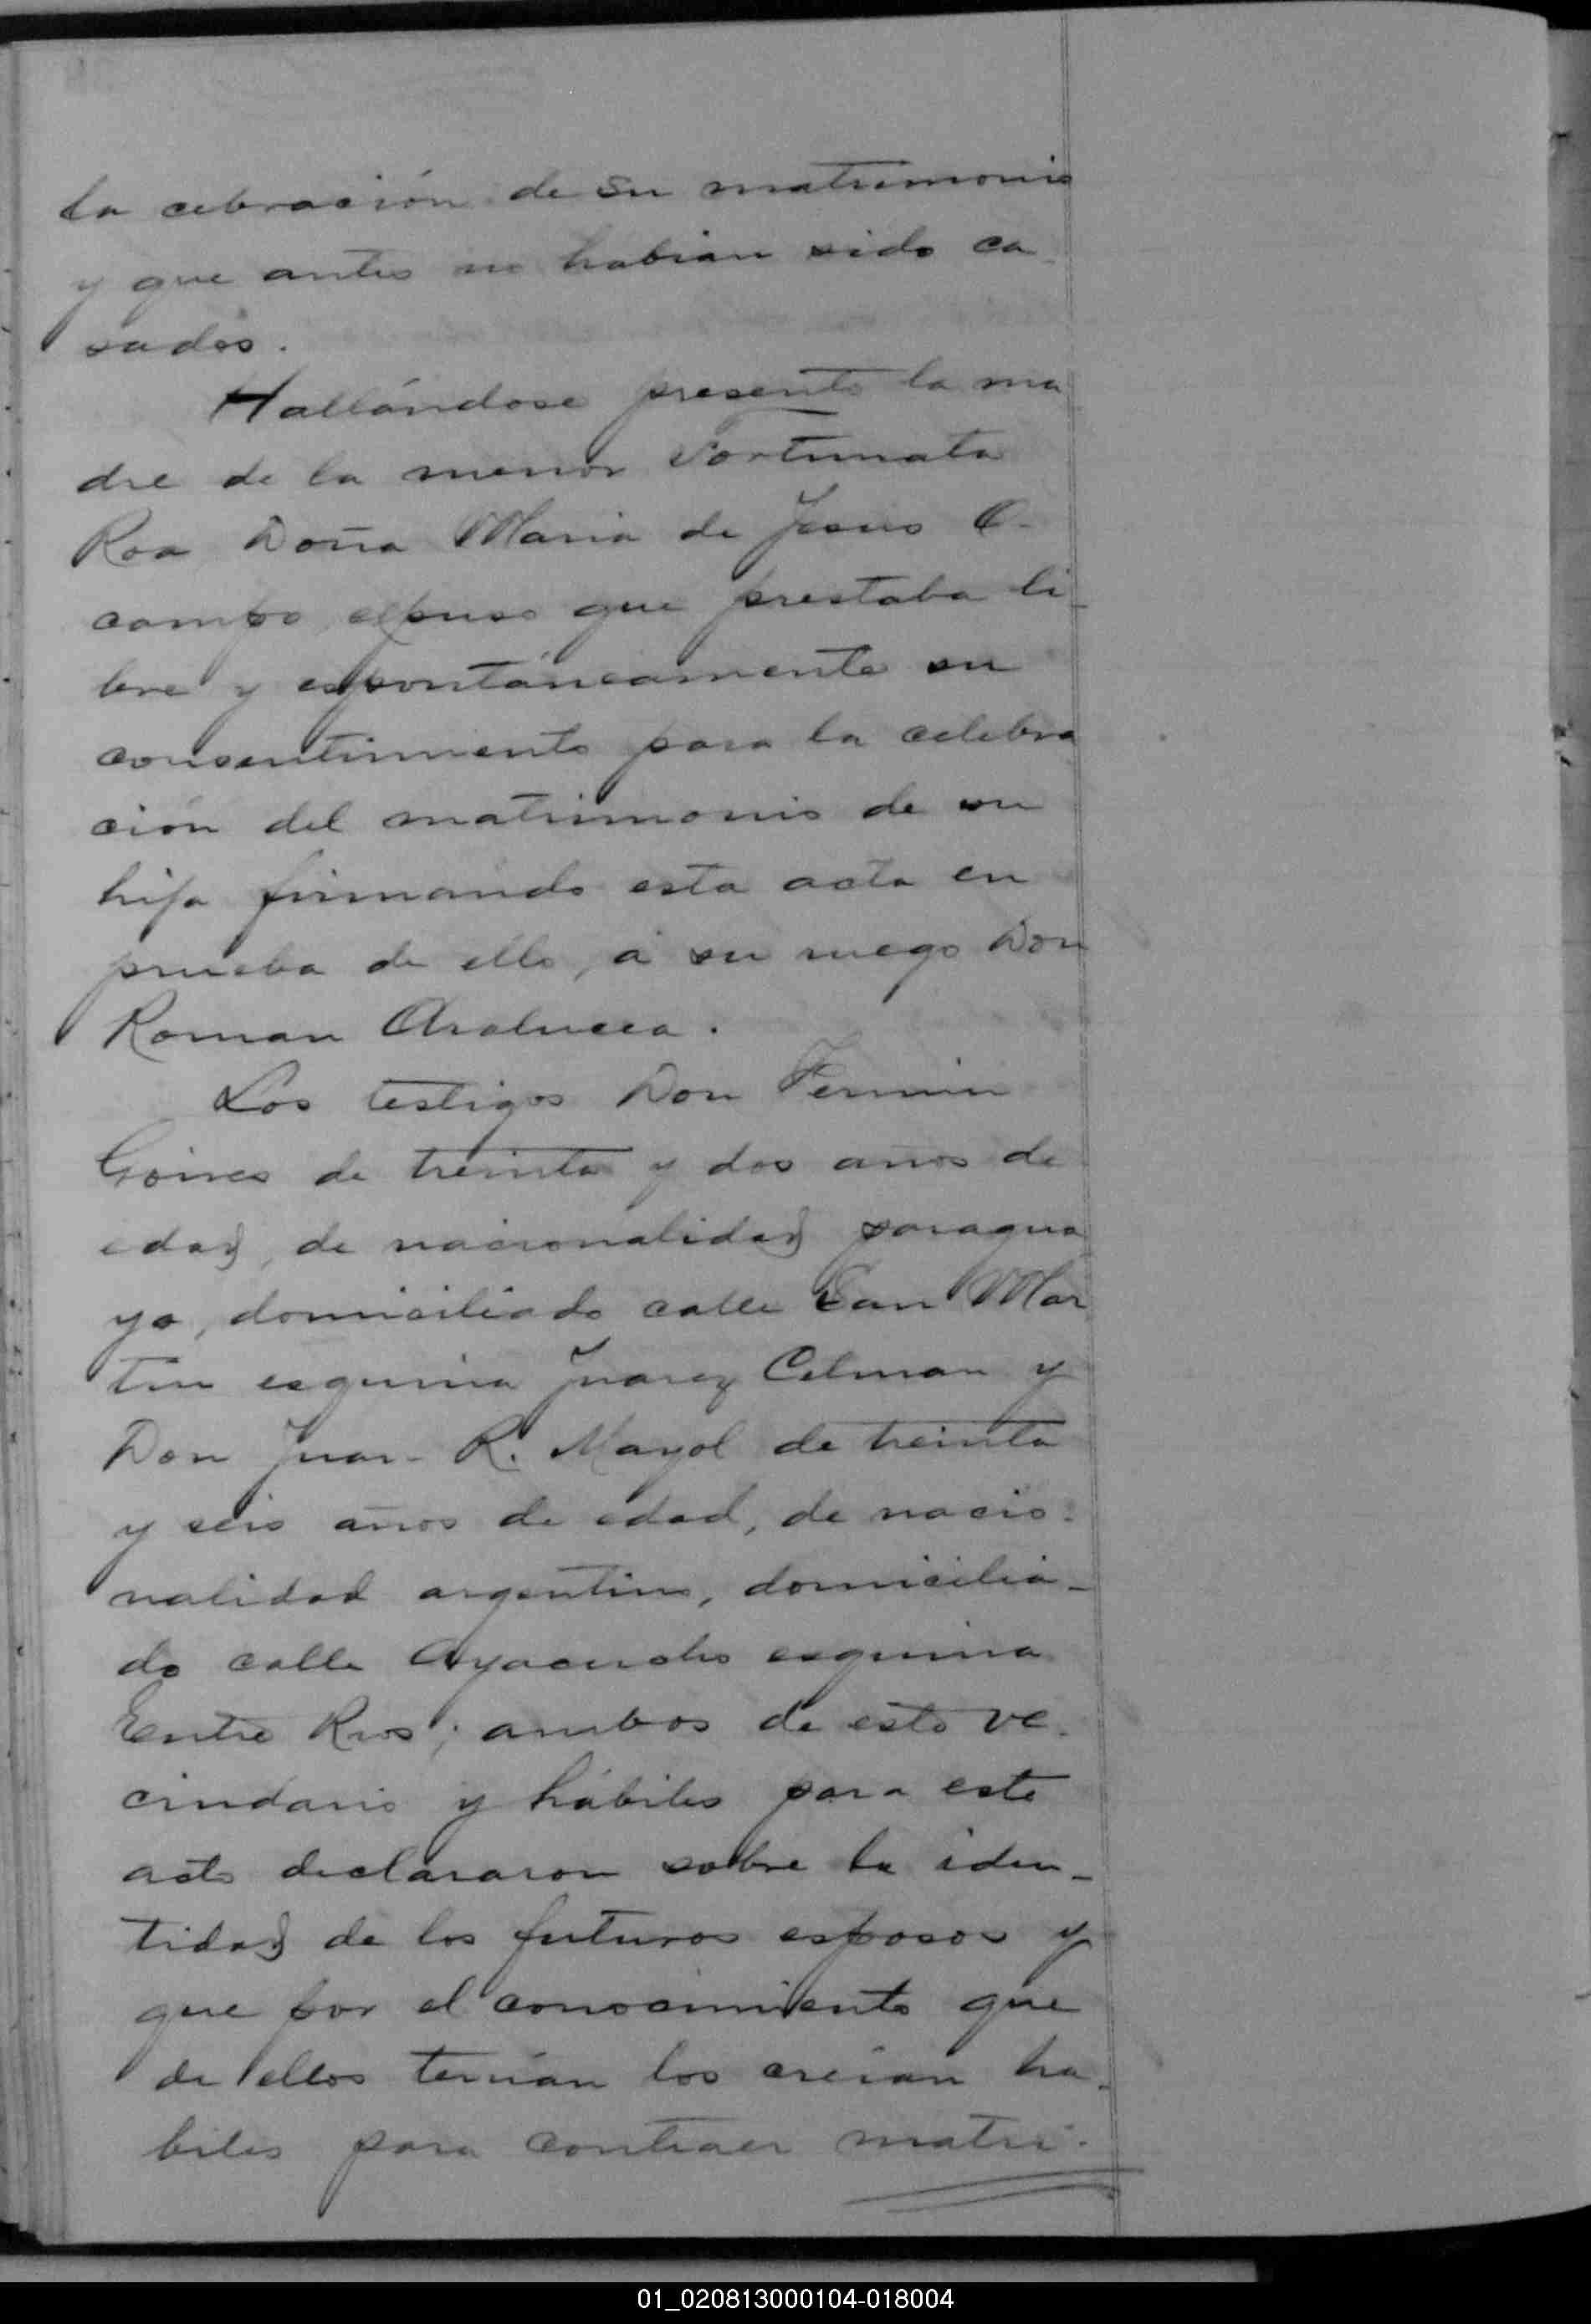 la cebración de su matrimonio
y que antes no habian sido ca
sados.
Hallándose presente la ma
dre de la menor Fortunata
Roa Doña Maria de Jesus O-
campo, espuso que prestaba li-
bre y espontáneamente su
consentimiento para la celebra
ción del matrimonio de su
hija firmando esta acta en
prueba de ello, á su ruego Don
Roman
Los testigos Don Fermin
de treinta y dos años de
edad, de nacionalidad paragua
yo, domiciliado calle San Mar
tin esquina Juarez Celman y
Don Juan R. Mayol de treinta
y seis años de edad, de nacio-
nalidad argentino, domicilia-
do calle Ayacucho esquina
Entre Rios; ambos de este ve-
cindario y hábiles para este
acto declararon sobre la iden-
tidad de los futuros esposos y
que por el conocimiento que
de ellos tenian los creian ha-
biles para contraer matri-
01_020813000104-018004